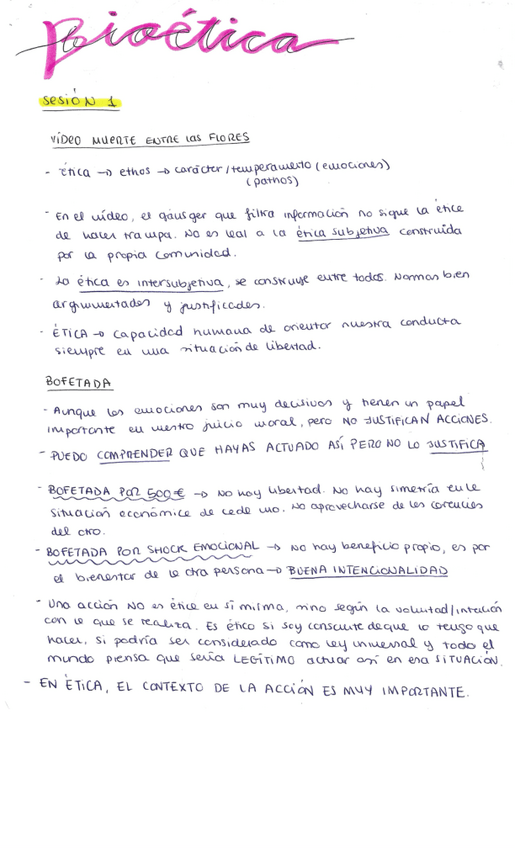 Bioética
SESIÓN 1
VÍDEO MUERTE ENTRE LAS FLORES
- Ética → ethos → carácter/temperamento (emociones)
(pathos)
- En el vídeo, el gánsger que filtra información no sigue la ética
de hacer trampa. No es leal a la ética subjetiva construida
por la propia comunidad.
- La ética es intersubjetiva, se construye entre todos. Normas bien
argumentadas y justificadas.
- ÉTICA → Capacidad humana de orientar nuestra conducta
siempre en una situación de libertad.
BOFETADA
- Aunque las emociones son muy decisivas y tienen un papel
importante en nuestro juicio moral, pero NO JUSTIFICAN ACCIONES.
- PUEDO COMPRENDER QUE HAYAS ACTUADO ASÍ PERO NO LO JUSTIFICA
- BOFETADA POR 500€ → No hay libertad. No hay simetría en la
situación económica de cada uno. No aprovecharse de las carencias
del otro.
- BOFETADA POR SHOCK EMOCIONAL → No hay beneficio propio, es por
el bienestar de la otra persona → BUENA INTENCIONALIDAD
- Una acción NO es ética en sí misma, sino según la voluntad/intención
con la que se realiza. Es ético si soy consciente de que lo tengo que
hacer, si podría ser considerado como ley universal y todo el
mundo piensa que sería LEGÍTIMO actuar así en esa SITUACIÓN.
- EN ÉTICA, EL CONTEXTO DE LA ACCIÓN ES MUY IMPORTANTE.